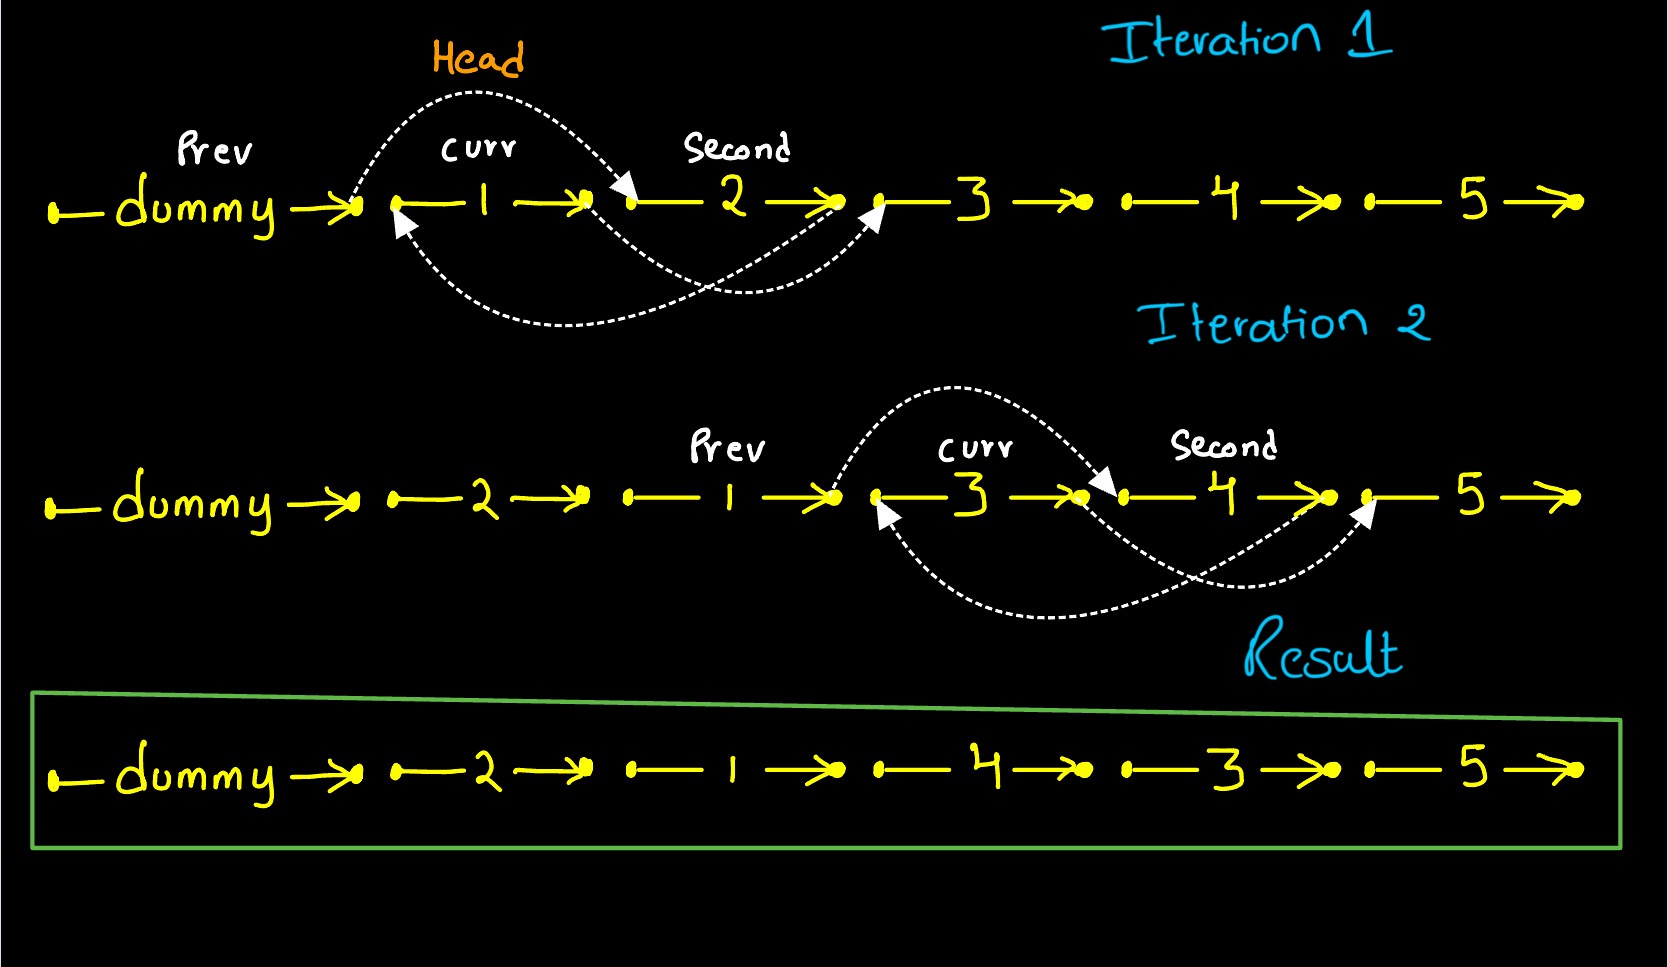 Iteration 1
Head
Prev curr Second
dummy 1 2 3 4 5
Iteration 2
Prev curr Second
dummy 2 1 3 4 5
Result
dummy 2 1 4 3 5